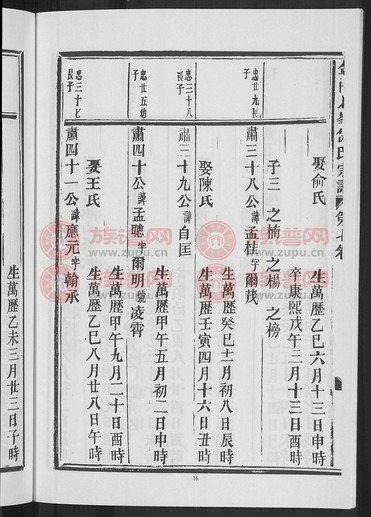 娶俞氏
生萬歷乙巳六月十三日申時
卒康熙戊午三月十三日酉時
子三 之楠 之楊 之榜
忠世九長子
肅三十八公諱孟桂字爾茂
生萬歷癸巳十一月初八日辰時
娶陳氏
生萬歷壬寅四月十六日丑時
忠三十八長子
肅三十九公諱自匡
忠世五幼子
肅四十公諱孟聰字爾明號凌霄
生萬歷甲午五月初二日申時
生萬歷甲午九月二十日酉時
娶王氏
生萬歷乙巳八月廿八日午時
忠三十七長子
肅四十一公諱應元字翰承
生萬歷乙未三月廿三日子時
16
族谱网
www.zupu.cn